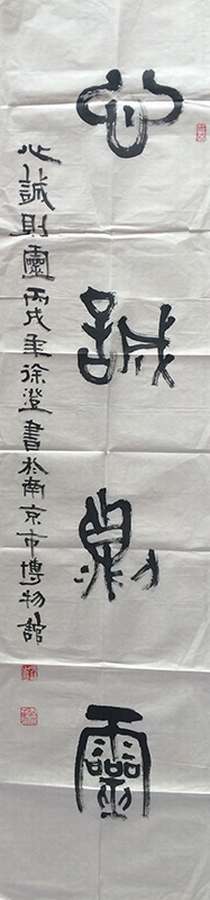 心誠則靈
心誠則靈丙戌年徐澄書於南京市博物館